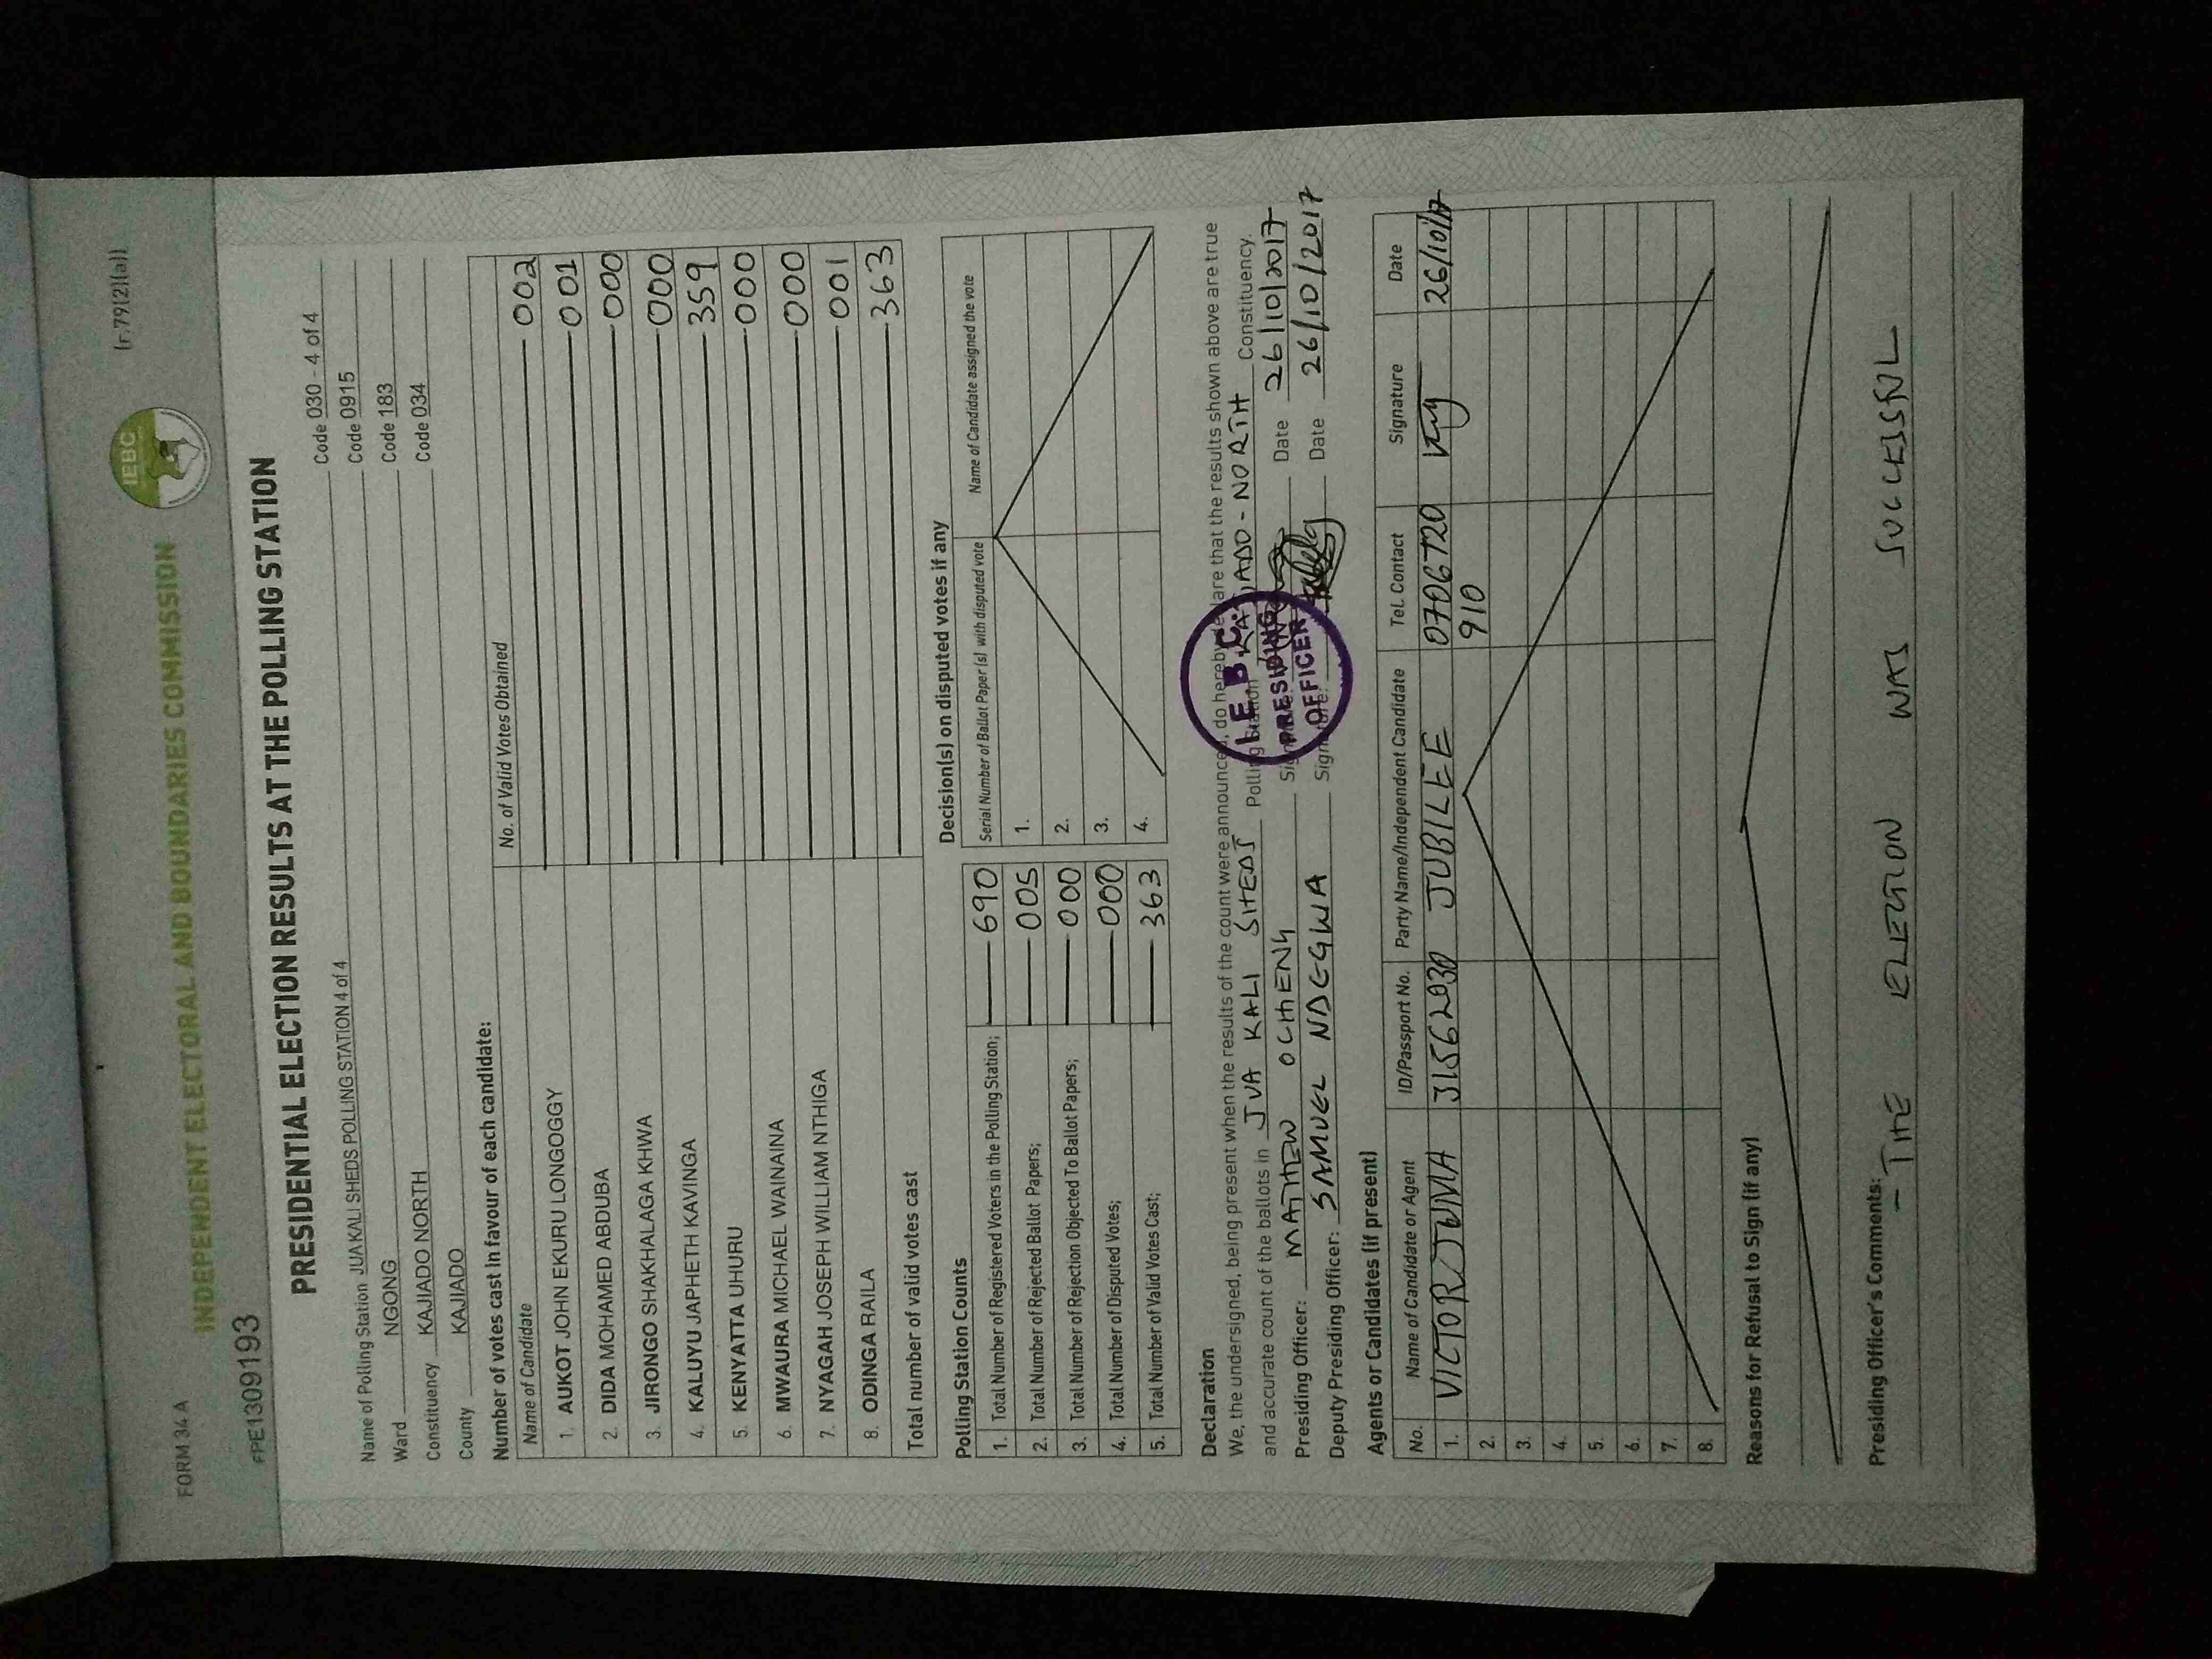 FORM 34 A
(r.79(2)(a))
IEBC
INDEPENDENT ELECTORAL AND BOUNDARIES COMMISSION
FPE1309193
PRESIDENTIAL ELECTION RESULTS AT THE POLLING STATION
Name of Polling Station JUA KALI SHEDS POLLING STATION 4 of 4 Code 030 - 4 of 4
Ward NGONG Code 0915
Constituency KAJIADO NORTH Code 183
County KAJIADO Code 034
Number of votes cast in favour of each candidate:
Name of Candidate No. of Valid Votes Obtained
1. AUKOT JOHN EKURU LONGOGGY 002
2. DIDA MOHAMED ABDUBA 001
3. JIRONGO SHAKHALAGA KHWA 000
4. KALUYU JAPHETH KAVINGA 000
5. KENYATTA UHURU 359
6. MWAURA MICHAEL WAINAINA 000
7. NYAGAH JOSEPH WILLIAM NTHIGA 000
8. ODINGA RAILA 001
Total number of valid votes cast 363
Polling Station Counts
1. Total Number of Registered Voters in the Polling Station; 690
2. Total Number of Rejected Ballot Papers; 005
3. Total Number of Rejection Objected To Ballot Papers; 000
4. Total Number of Disputed Votes; 000
5. Total Number of Valid Votes Cast; 363
Decision(s) on disputed votes if any
Serial Number of Ballot Paper (s) with disputed vote Name of Candidate assigned the vote
1.
2.
3.
4.
Declaration
We, the undersigned, being present when the results of the count were announced, do hereby declare that the results shown above are true
and accurate count of the ballots in JUA KALI SHEDS Polling Station KAJIADO - NORTH Constituency.
Presiding Officer: MATHEW OCHENG Signature: Date 26/10/2017
Deputy Presiding Officer: SAMUEL NDEGWA Signature: Date 26/10/2017
I.E.B.C.
PRESIDING
OFFICER
Agents or Candidates (if present)
No. Name of Candidate or Agent ID/Passport No. Party Name/Independent Candidate Tel. Contact Signature Date
1. VICTOR JUMA 31562030 JUBILEE 0706720 910 26/10/17
2.
3.
4.
5.
6.
7.
8.
Reasons for Refusal to Sign (if any)
Presiding Officer's Comments:
- THE ELECTION WAS SUCCESSFUL